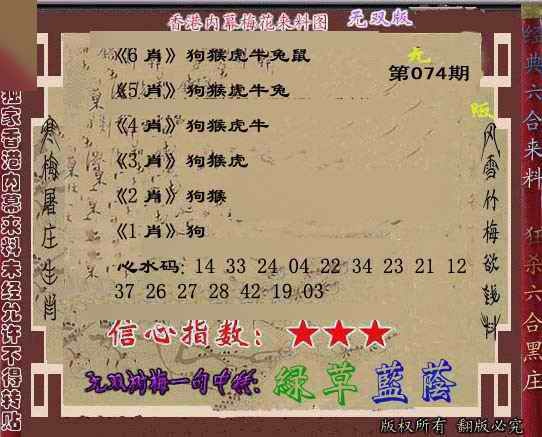 香港内幕梅花来料图 无双版
第074期
《6 肖》狗猴虎牛兔鼠
《5 肖》狗猴虎牛兔
《4 肖》狗猴虎牛
《3 肖》狗猴虎
《2 肖》狗猴
《1 肖》狗
心水码: 14 33 24 04 22 34 23 21 12
37 26 27 28 42 19 03
信心指数: ★★★
绿草蓝荫
版权所有 翻版必究
独家香港内幕来料未经允许不得转贴
寒梅屠庄生肖
风雪竹梅欲钱料
经典六合来料
狂杀六合黑庄